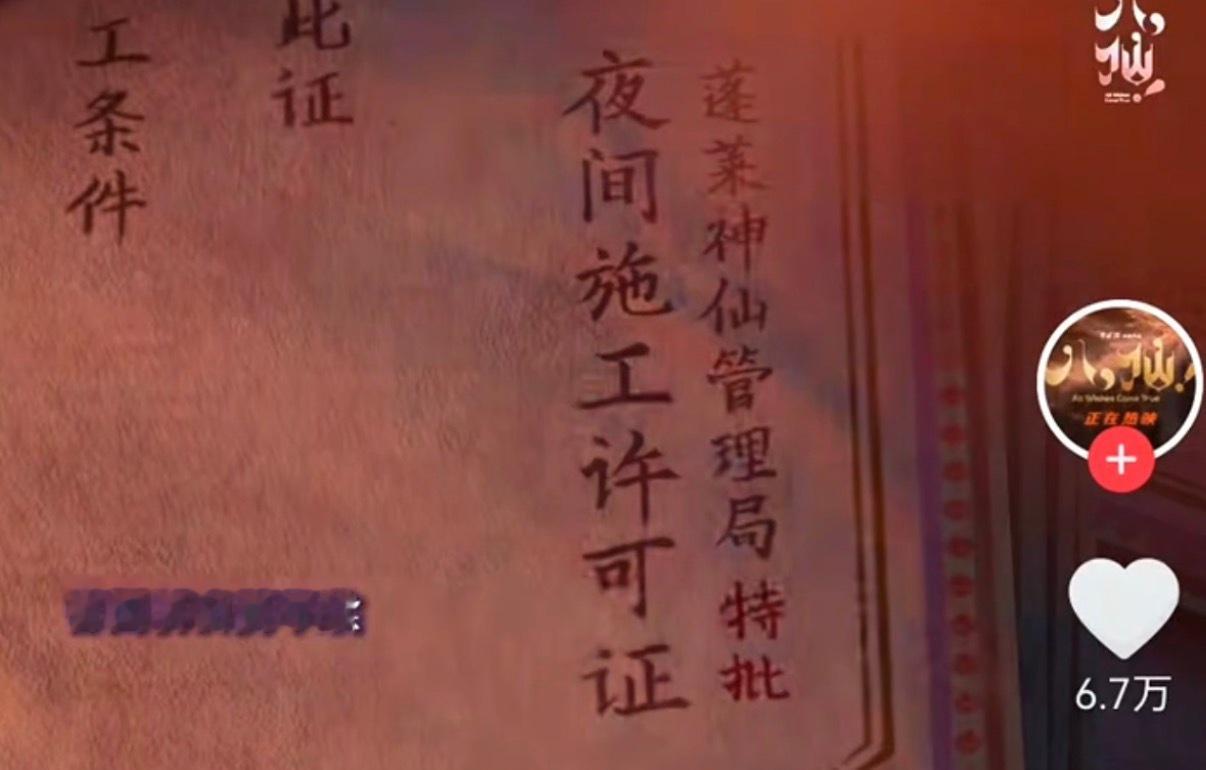 蓬莱神仙管理局特批
夜间施工许可证
此证
工条件
八仙
八仙!
All Wishes Come True
正在热映
6.7万